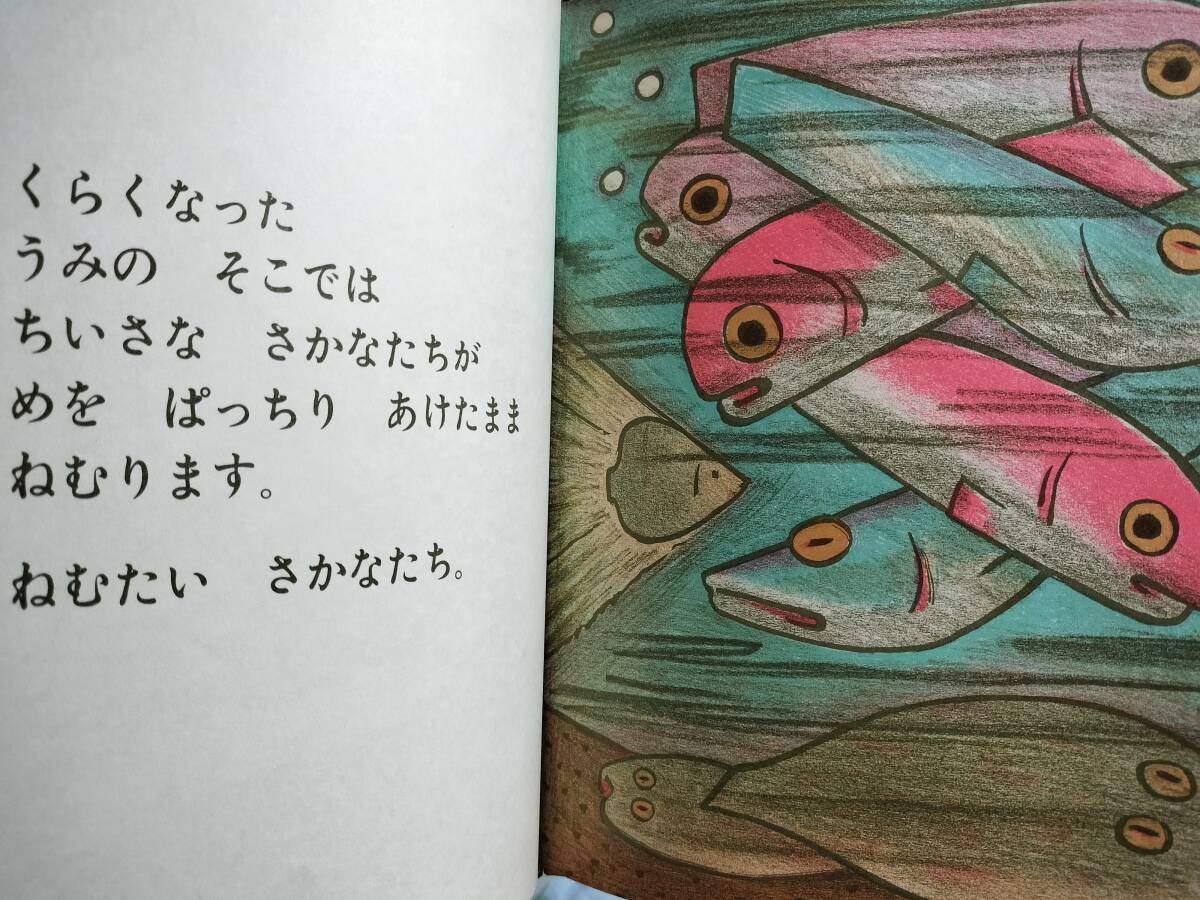 くらくなった
うみの　そこでは
ちいさな　さかなたちが
めを　ぱっちり　あけたまま
ねむります。
ねむたい　さかなたち。